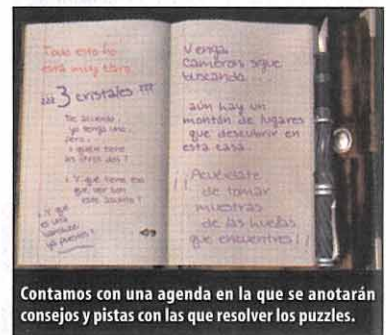 Todo esto no
está muy claro.
¿¿¿ 3 cristales ???
De acuerdo,
yo tengo uno,
pero...
¿ quién tiene
los otros dos ?
¿ Y qué tiene eso
que ver con
este asunto ?
¿ Y qué
es una
ya puestos ?
Venga
Cameros sigue
buscando...
aún hay un
montón de lugares
que descubrir en
esta casa.
¡¡ Acuérdate
de tomar
muestras
de las huellas
que encuentres !!
Contamos con una agenda en la que se anotarán
consejos y pistas con las que resolver los puzzles.